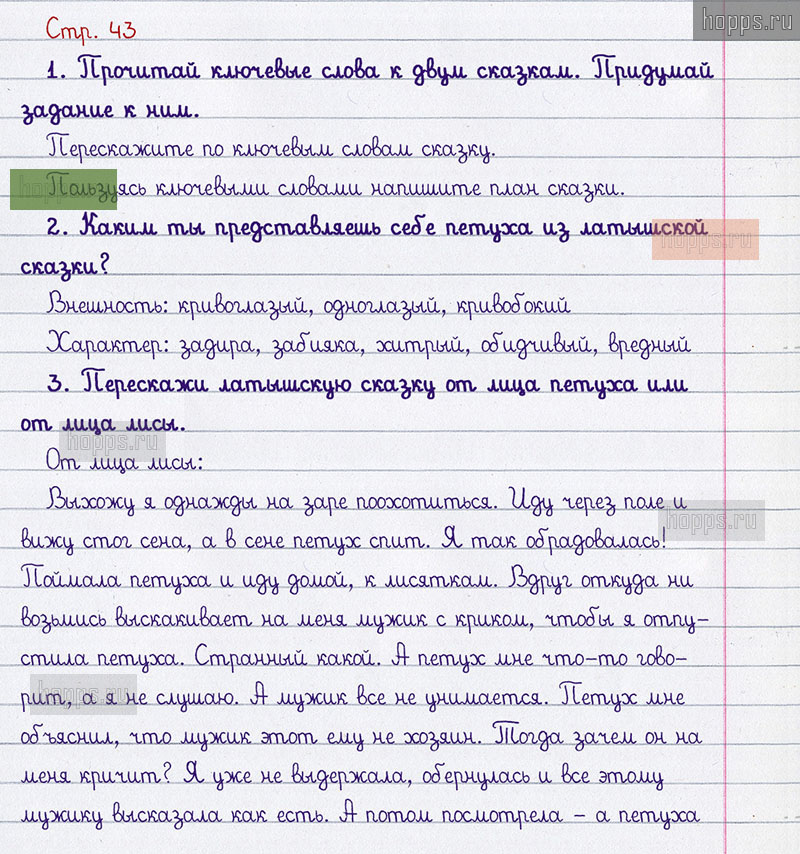 hopps.ru
Стр. 43
1. Прочитай ключевые слова к двум сказкам. Придумай
задание к ним.
Перескажите по ключевым словам сказку.
Пользуясь ключевыми словами напишите план сказки.
2. Каким ты представляешь себе петуха из латышской
hopps.ru
сказки?
Внешность: кривоглазый, одноглазый, кривобокий
Характер: задира, забияка, хитрый, обидчивый, вредный
3. Перескажи латышскую сказку от лица петуха или
от лица лисы.
hopps.ru
От лица лисы:
Выхожу я однажды на заре поохотиться. Иду через поле и
hopps.ru
вижу стог сена, а в сене петух спит. Я так обрадовалась!
Поймала петуха и иду домой, к лисяткам. Вдруг откуда ни
возьмись выскакивает на меня мужик с криком, чтобы я отпу-
стила петуха. Странный какой. А петух мне что-то гово-
рит, а я не слушаю. А мужик все не унимается. Петух мне
hopps.ru
объяснил, что мужик этот ему не хозяин. Тогда зачем он на
меня кричит? Я уже не выдержала, обернулась и все этому
мужику высказала как есть. А потом посмотрела – а петуха